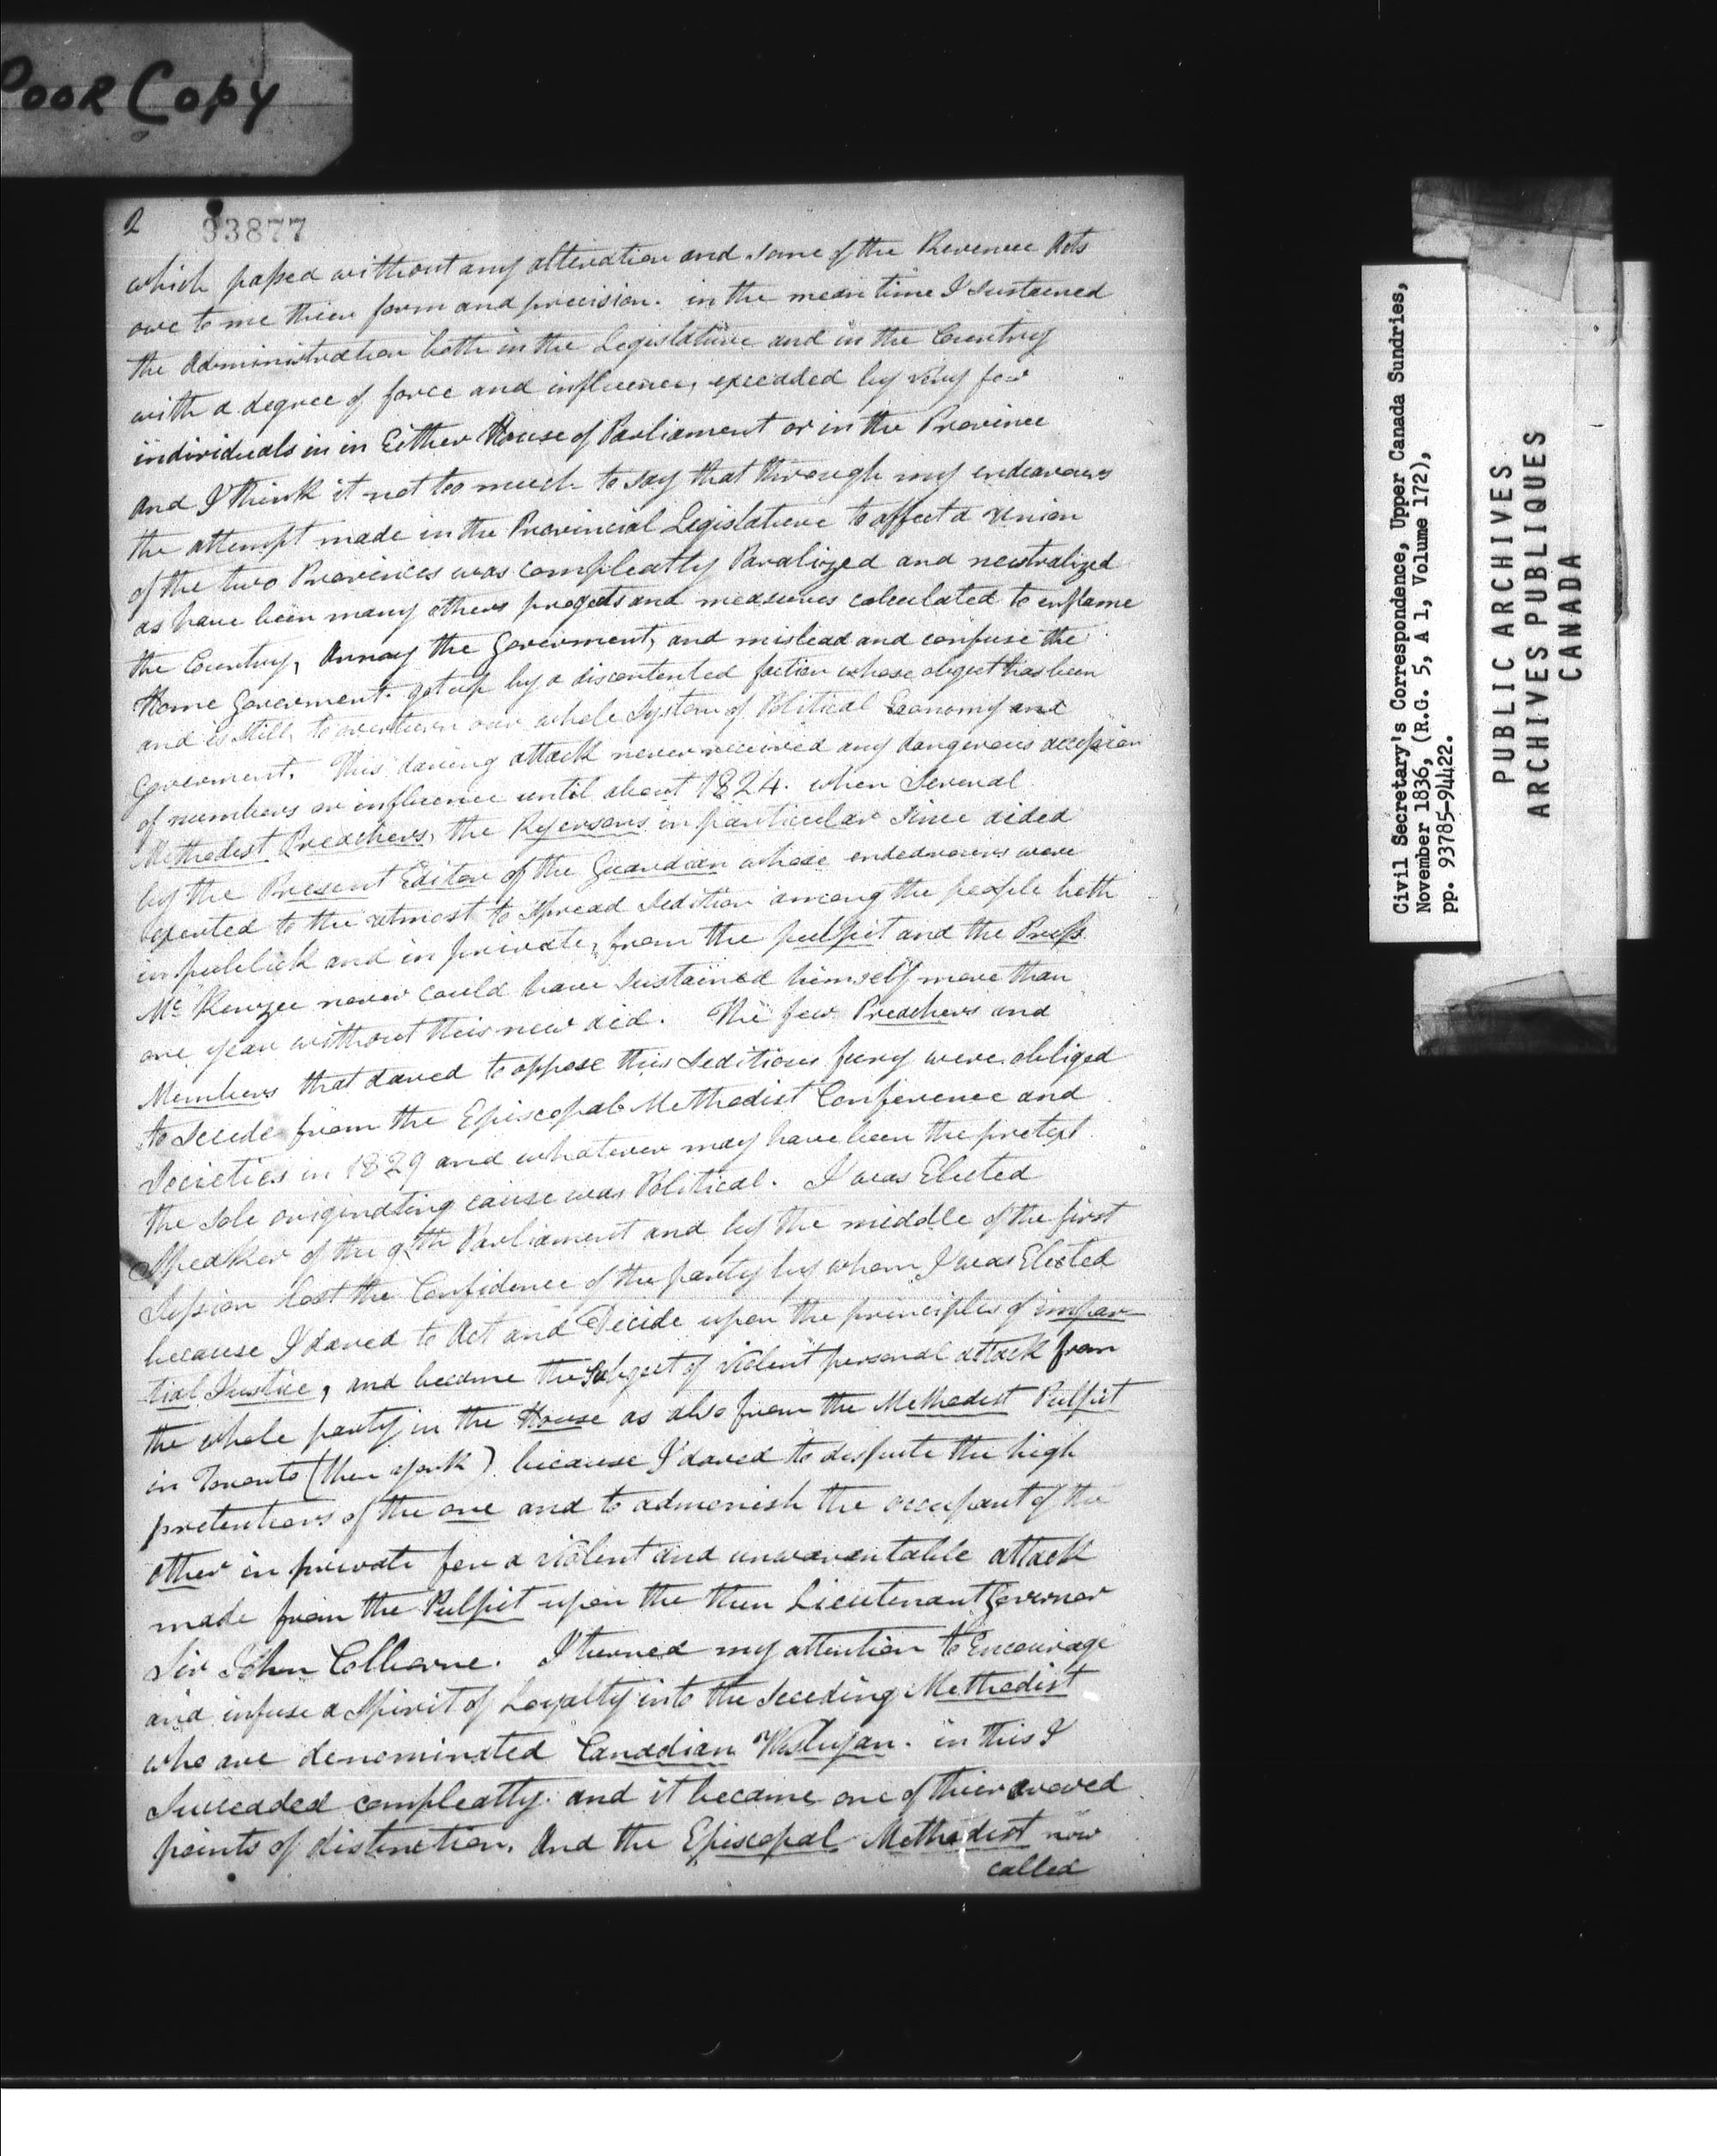 Poor Copy
2 93877
which passed without any alteration and some of the Revenue Acts
owe to me thier form and precision. in the mean time I sustained
the Administration both in the Legislature and in the Country
with a degree of force and influence, exceaded by very few
individuals in in Either House of Parliament or in the Province
and I think it not too much to say that through my endeavours
the attempt made in the Provincial Legislature to affect a Union
of the two Provinces was compleatly Paralized and neutralized
as have been many others progets and measures calculated to inflame
the Country, Annoy the Goverment, and mislead and confuse the
Home Goverment. got up by a discontented faction whose object has been
and is still to overturn our whole System of Political Economy and
Goverment. This daring attack never received any dangerous accession
of numbers or influence until about 1824. when Several
Methodist Preachers, the Ryersons in particular Since aided
by the Present Editor of the Guardian whose endeavours were
exerted to the utmost to Spread Sedition among the people both
in publick and in private, from the pulpit and the Press
Mc Kenzee never could have Sustained himself more than
one year without this new aid. The few Preachers and
Members that dared to oppose this Seditious fury were obliged
to Secede from the Episcopal Methodist Conference and
Societies in 1829 and whatever may have been the pretext
the Sole originating cause was Political. I was Elected
Speaker of the 9th Parliament and by the middle of the first
Session lost the Confidence of the party by whom I was Elected
because I dared to Act and Decide upon the principles of impar-
tial Justice, and became the Subject of violent personal attack from
the whole party in the House as also from the Methodist Pulpit
in Toronto (then York) because I dared to dispute the high
pretentions of the one and to admonish the occupant of the
other in private for a violent and unwarrantable attack
made from the Pulpit upon the then Lieutenant Governor
Sir John Colborne. I turned my attention to Encourage
and infuse a Spirit of Loyalty into the Seceding Methodist
who are denominated Canadian Wesleyan. in this I
Succeaded compleatly. and it became one of thier avowed
points of distinction. And the Episcopal Methodist now
called
Civil Secretary's Correspondence, Upper Canada Sundries,
November 1836, (R.G. 5, A 1, Volume 172),
pp. 93785-94422.
PUBLIC ARCHIVES
ARCHIVES PUBLIQUES
CANADA